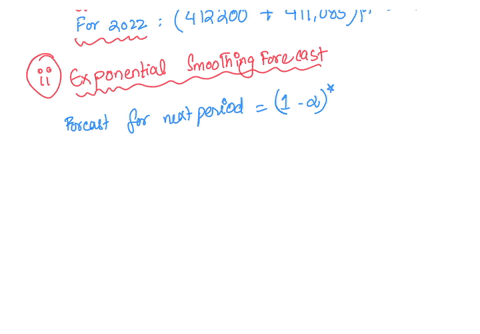 For 2022 : (412200 + 411,085)
ii Exponential Smoothing Forecast
Forcast for next period = (1 - α)*